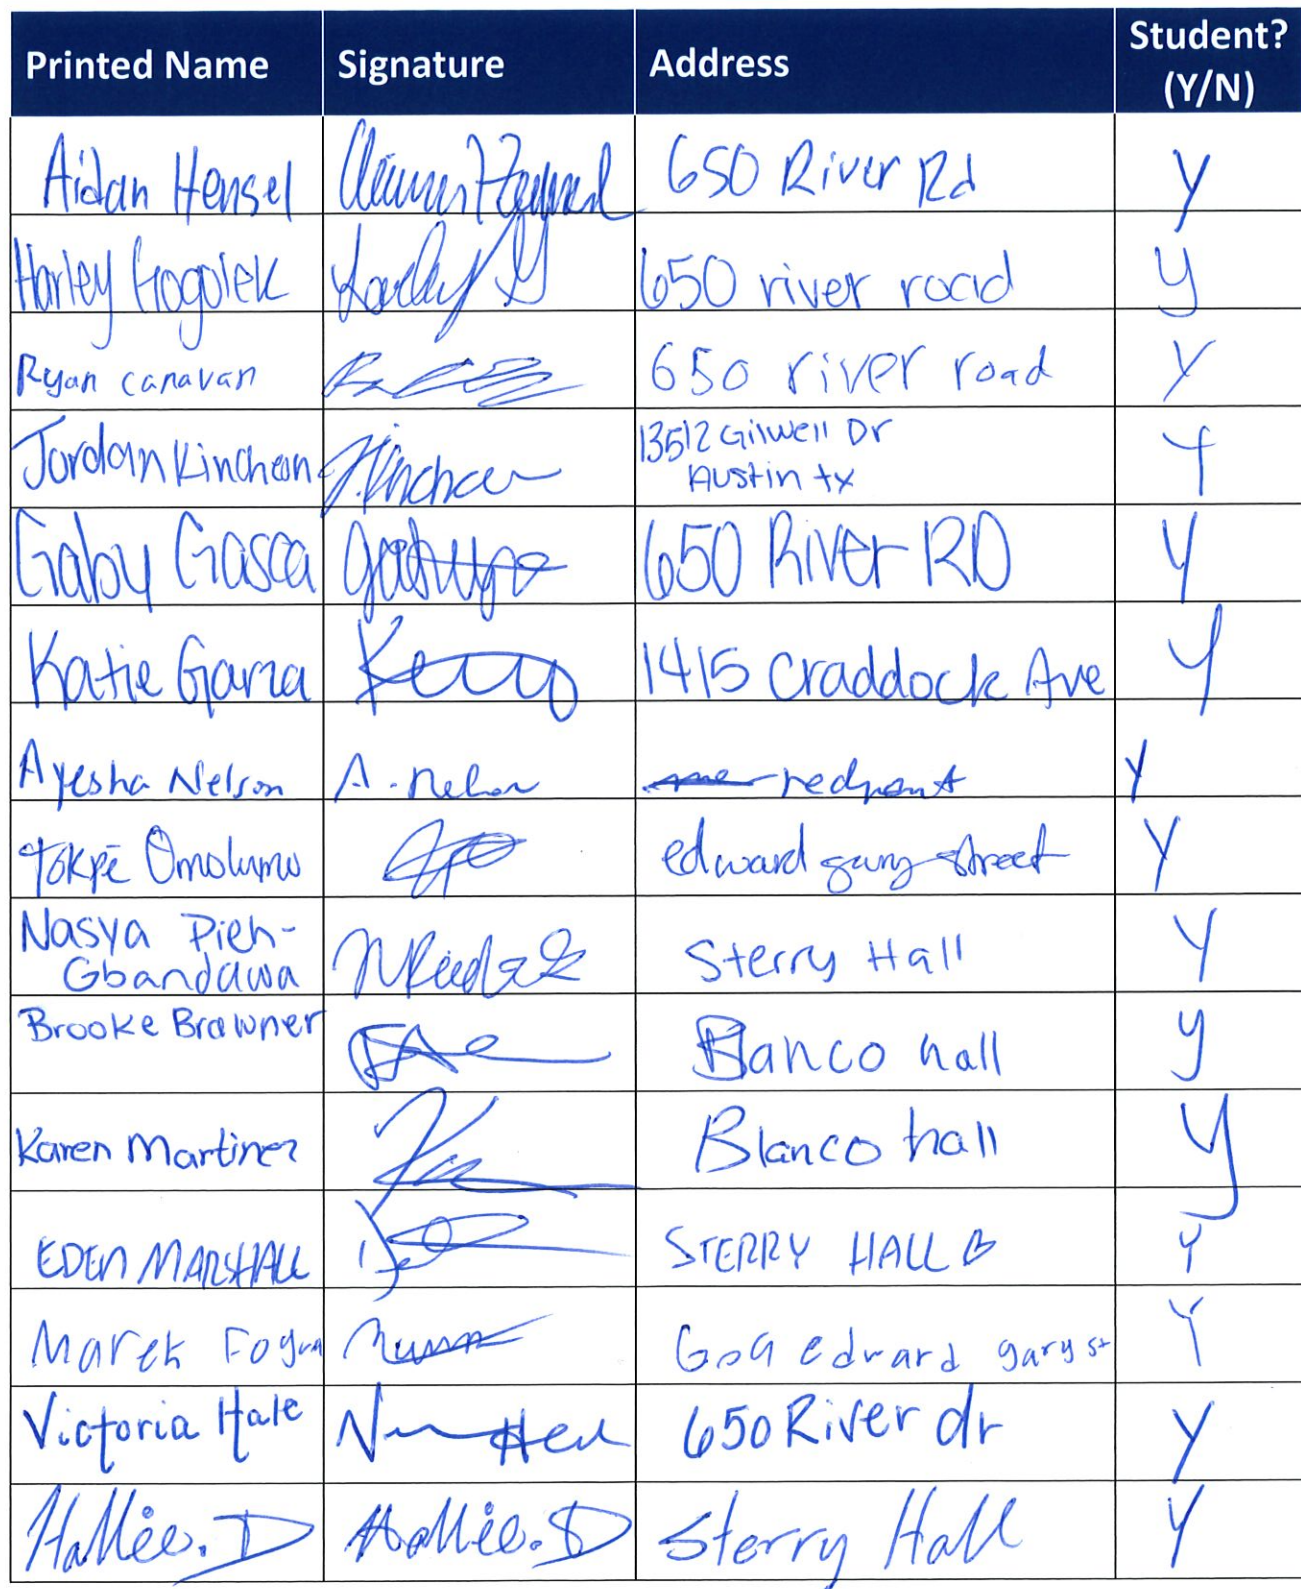 Printed Name Signature Address Student? (Y/N)
Aidan Hensel 650 River Rd Y
Harley Gogolek Harley G 650 river road y
Ryan canavan 650 river road Y
Jordan Kincheon J.Kincheon 13512 Gilwell Dr
Austin tx Y
Gaby Gasca 650 River RD Y
Katie Garza 1415 Craddock Ave Y
Ayesha Nelson A. Nelson redpoint Y
Omolumo edward gary street Y
Nasya Pieh-
Gbandawa Sterry Hall Y
Brooke Brawner Blanco hall y
Karen Martinez Blanco hall y
EDEN MARSHALL STERRY HALL Y
Marek edward gary st Y
Victoria Hale 650 River dr Y
Hallie. D Hallie. D Sterry Hall Y